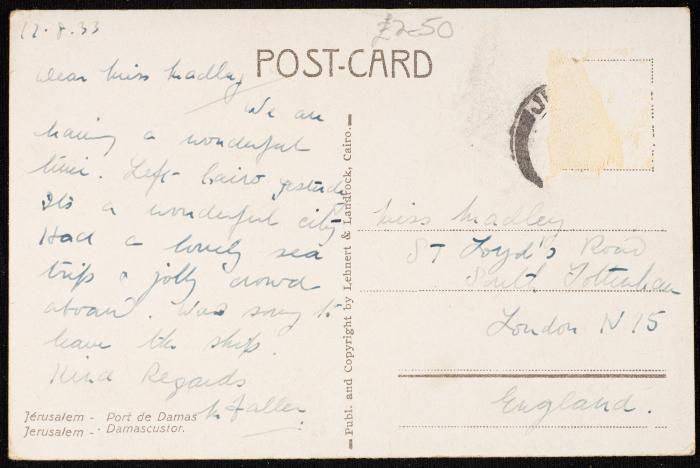 17.8.33
£2.50
POST-CARD
Dear Miss Madley
We are
having a wonderful
time. Left Cairo yesterday
It's a wonderful city
Had a lovely sea
trip & jolly crowd
aboard. Was sorry to
leave the ship.
Kind Regards
Jérusalem - Port de Damas
Jerusalem - Damascustor.
Publ. and Copyright by Lehnert & Landrock, Cairo.
JE
Miss Madley
St Loyd's Road
South Tottenham
London N15
England.